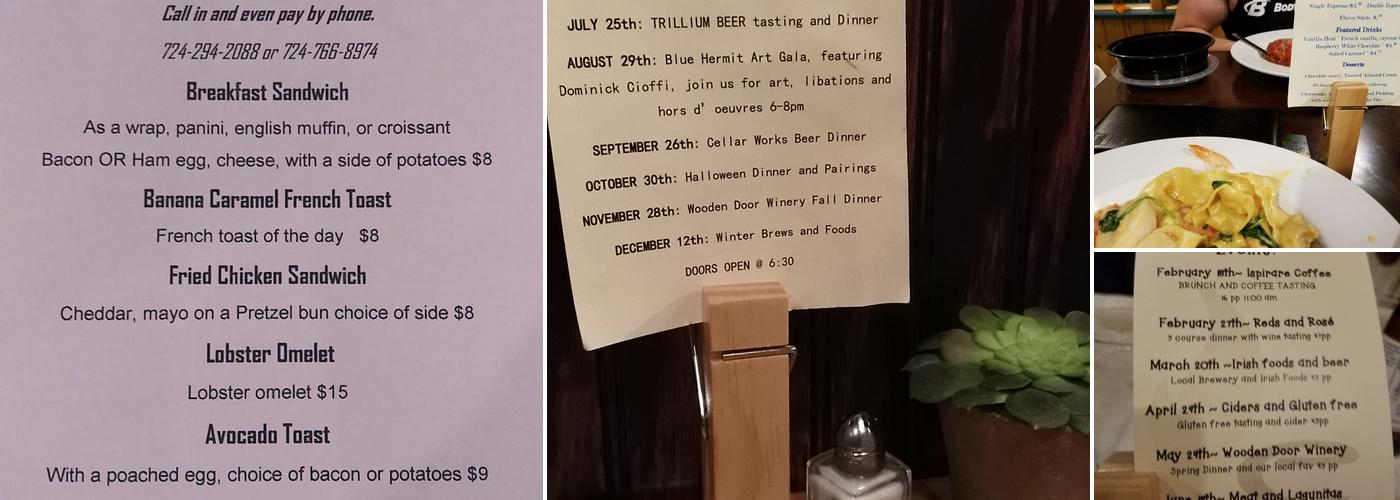 Call in and even pay by phone.
724-294-2088 or 724-766-8974
Breakfast Sandwich
As a wrap, panini, english muffin, or croissant
Bacon OR Ham egg, cheese, with a side of potatoes $8
Banana Caramel French Toast
French toast of the day $8
Fried Chicken Sandwich
Cheddar, mayo on a Pretzel bun choice of side $8
Lobster Omelet
Lobster omelet $15
Avocado Toast
With a poached egg, choice of bacon or potatoes $9
JULY 25th: TRILLIUM BEER tasting and Dinner
AUGUST 29th: Blue Hermit Art Gala, featuring
Dominick Cioffi, join us for art, libations and
hors d' oeuvres 6-8pm
SEPTEMBER 26th: Cellar Works Beer Dinner
OCTOBER 30th: Halloween Dinner and Pairings
NOVEMBER 28th: Wooden Door Winery Fall Dinner
DECEMBER 12th: Winter Brews and Foods
DOORS OPEN @ 6:30
Single Espresso Double
Flavor Shots
Featured Drinks
Vanilla Heat French vanilla,
Raspberry White Chocolate
Salted Caramel
Desserts
Toasted Almond Cream
February ~ Ispirare Coffee
BRUNCH AND COFFEE TASTING
16 pp 11:00 am
February 27th~ Reds and Rosé
3 course dinner with wine tasting
March 20th ~Irish foods and beer
Local Brewery and Irish Foods pp
April 24th ~ Ciders and Gluten free
Gluten free tasting and cider
May 24th~ Wooden Door Winery
Spring Dinner and our local fav pp
Meat and Lagunitas